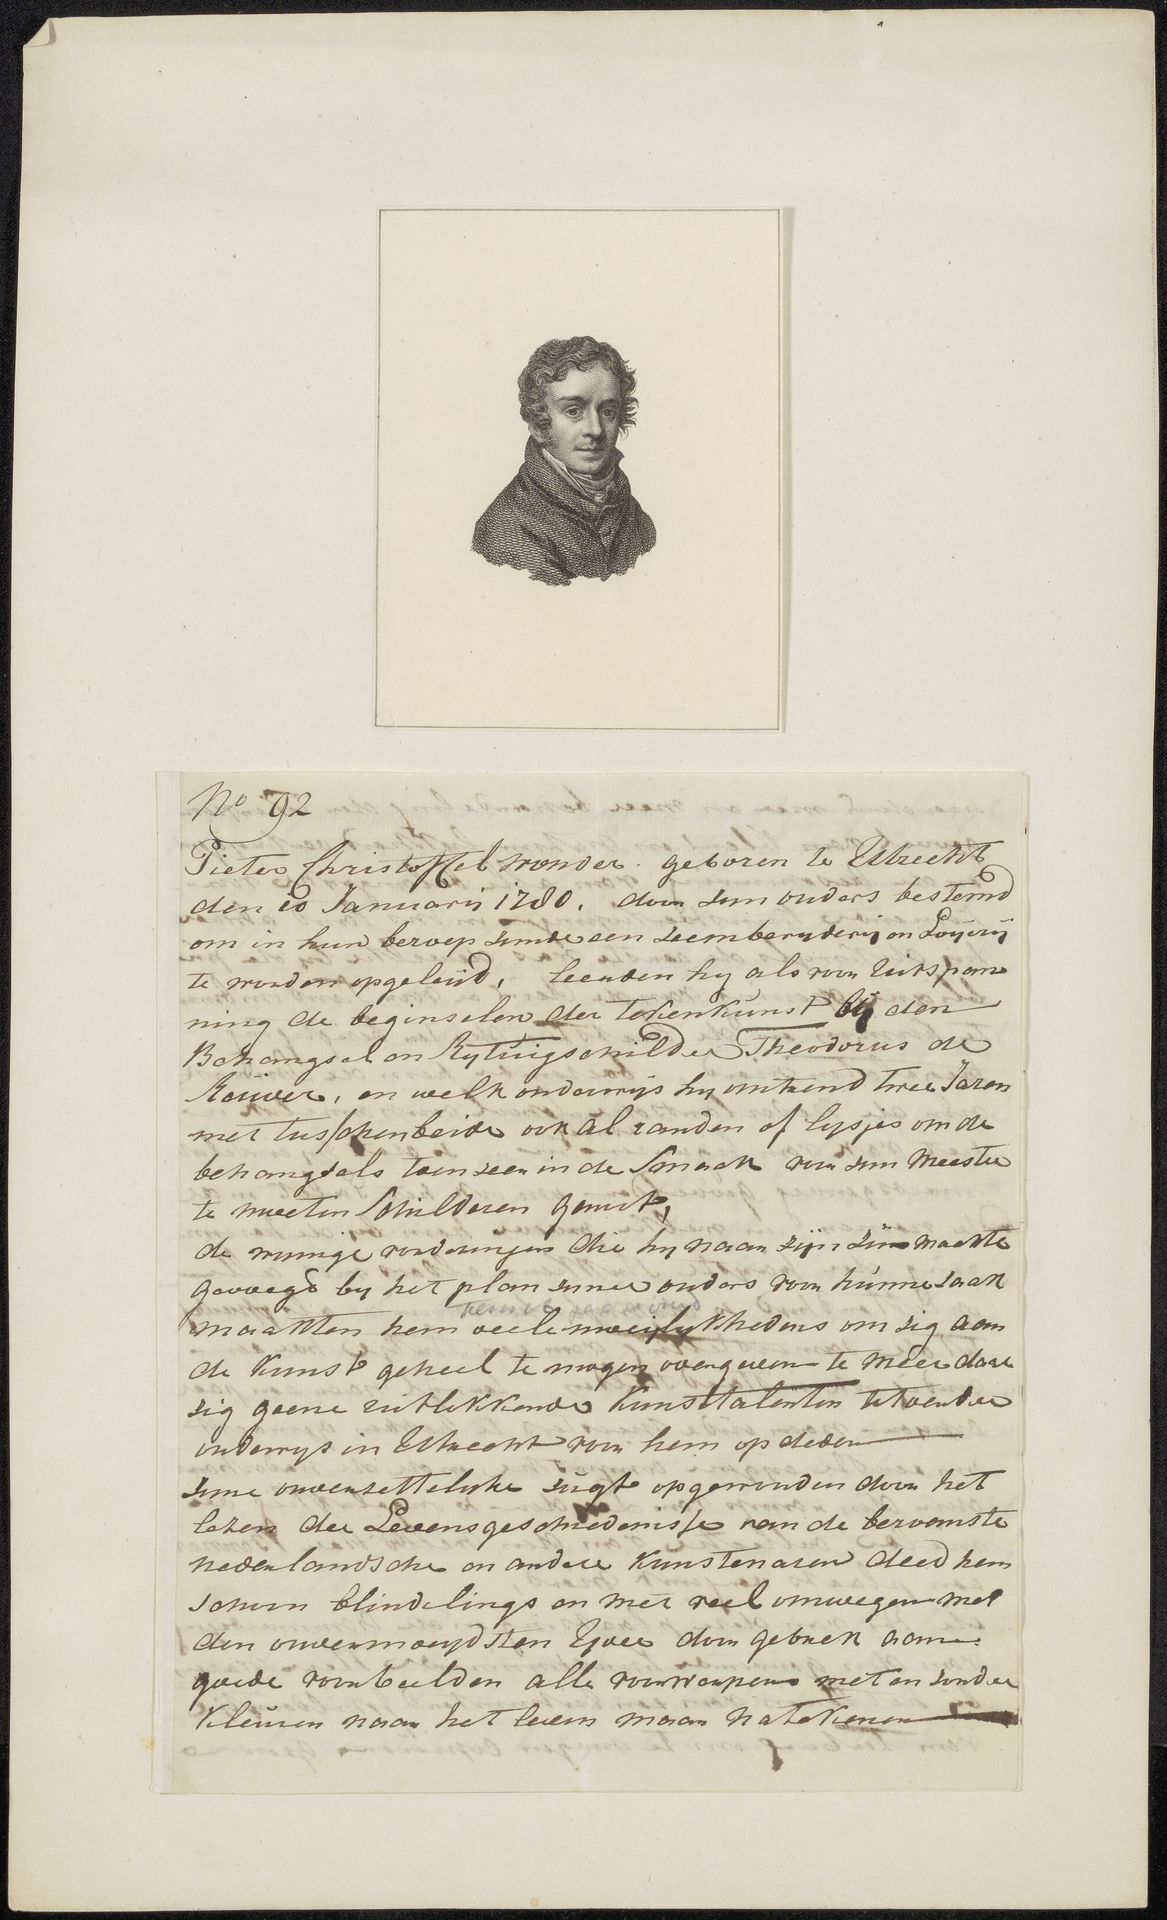 No 92
Pieter Christoffel Wonder. geboren te Utrecht
den 10 Januarij 1780. door zyn ouders bestemd
om in hun beroep zynde een zeembereyderij en Looijerij
te worden opgeleid, leerden hy als voor uitspan
ning de beginselen der tekenkunst bij den
Behangsel en Rytuigschilder Theodorus de
en welk onderwys hy omtrend twee Jaren
met tusschenbeide ook al randen of lysjes om de
behangsels toen zeer in de smaak voor zyn Meester
te moeten schilderen genoot,
de vorderingen die hy naar zijn zin maakte
gevoegd by het plan zyner ouders voor hunne zaak
maakten hem veele moeijlykhedens om zig aan
de Kunst geheel te mogen overgeven te meer daar
zig geene uitblikkende Kunsttalenten tot verder
onderwys in Utrecht voor hem op deden
zyne onverzettelyke zugt opgewonden door het
lezen der Levensgeschiedenisse van de beroemste
nederlandsche en andere Kunstenaren deed hem
schoon blindelings en met veel omwegen met
den onvermoeydsten Yver door gebrek aan
goede voorbeelden alle voorwerpen met en zonder
Kleuren naar het leven maar natekenen